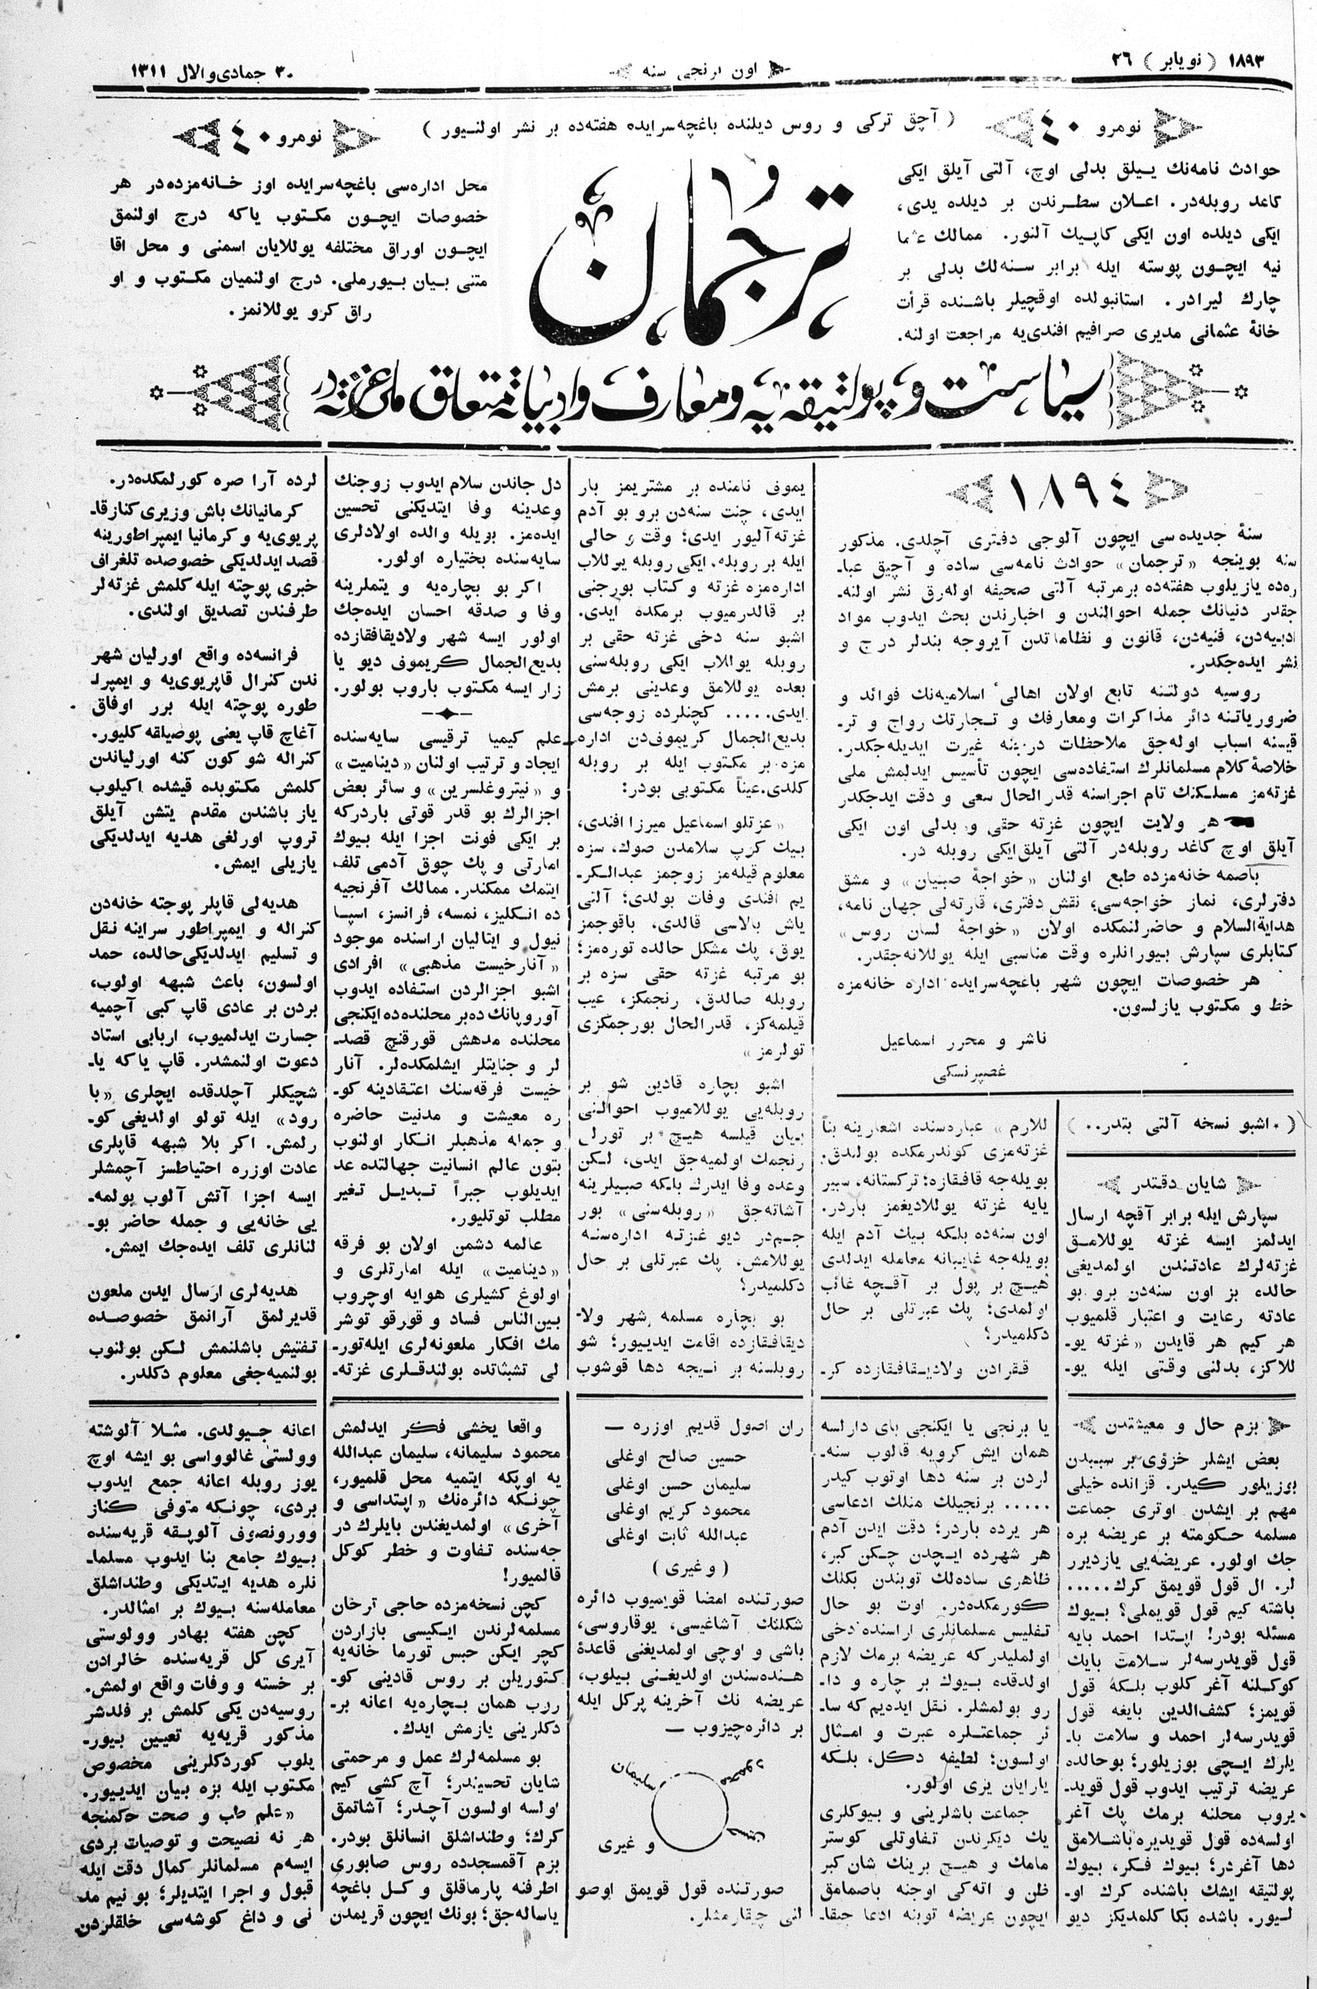 ١٨٩٣ ( نویابر ) ٢٦
اون برنجی سنه
٣٠ جمادی والال ١٣١١
نومرو ٤٠
( آچق ترکی و روس دیلنده باغچه سرایده هفته ده بر نشر اولنیور )
نومرو ٤٠
حوادث نامه نك ییلق بدلی اوچ، آلتی آیلق ایکی
کاغد روبله در. اعلان سطرندن بر دیلده یدی،
ایکی دیلده اون ایکی کاپیك آلنور. ممالك عثما
نیه ایچون پوسته ایله برابر سنه لك بدلی بر
چارك لیرادر. استانبولده اوقچیلر باشنده قرأت
خانهٔ عثمانی مدیری صرافیم افندی یه مراجعت اولنه.
ترجمان
محل اداره سی باغچه سرایده اوز خانه مزده در هر
خصوصات ایچون مکتوب یاکه درج اولنمق
ایچون اوراق مختلفه یوللایان اسمنی و محل اقا
متنی بیان بیورملی. درج اولنمیان مکتوب و او
راق کرو یوللانمز.
سیاست و پولتیقه یه و معارف و ادبیاته متعلق ملی غزته در
١٨٩٤
سنهٔ جدیده سی ایچون آلوجی دفتری آچلدی. مذکور
سنه بوینجه «ترجمان» حوادث نامه سی ساده و آچیق عبا۔
ره ده یازیلوب هفته ده برمرتبه آلتی صحیفه اوله رق نشر اولنه۔
جقدر دنیانك جمله احوالندن و اخبارندن بحث ایدوب مواد
ادبیه دن، فنیه دن، قانون و نظاماتدن آیروجه بندلر درج و
نشر ایده جکدر.
روسیه دولتنه تابع اولان اهالیٔ اسلامیه نك فوائد و
ضروریاتنه دائر مذاکرات ومعارفك و تجارتك رواج و تر۔
قیسنه اسباب اوله جق ملاحظات درینه غیرت ایدیله جکدر.
خلاصهٔ کلام مسلمانلرك استفاده سی ایچون تأسیس ایدلمش ملی
غزته مز مسلکنك تام اجراسنه قدر الحال سعی و دقت ایدجکدر
هر ولایت ایچون غزته حقی و بدلی اون ایکی
آیلق اوچ کاغد روبله در آلتی آیلق ایکی روبله در.
باصمه خانه مزده طبع اولنان «خواجهٔ صبیان» و مشق
دفترلری، نماز خواجه سی؛ نقش دفتری، قارته لی جهان نامه،
هدایة السلام و حاضرلنمکده اولان «خواجهٔ لسان روس»
کتابلری سپارش بیورانلره وقت مناسبی ایله یوللانه جقدر.
هر خصوصات ایچون شهر باغچه سرایده اداره خانه مزه
خط و مکتوب یازلسون.
ناشر و محرر اسماعیل
غصپرنسکی
( ۰اشبو نسخه آلتی بتدر.. )
شایان دقتدر
سپارش ایله برابر آقچه ارسال
ایدلمز ایسه غزته یوللامق
غزته لرك عادتندن اولمدیغی
حالده، بز اون سنه دن برو بو
عادته رعایت و اعتبار قلمیوب
هر کیم هر قایدن «غزته یو۔
للاکز، بدلنی وقتی ایله یو۔
للارم» عباره سنده اشعارینه بناً
غزته مزی کوندرمکده بولندق.
بویله جه قافقازه؛ ترکستانه، سبیر
یایه غزته یوللادیغمز باردر.
اون سنه ده بلکه بیك آدم ایله
بویله جه غایبانه معامله ایدلدی
هیچ بر پول بر آقچه غائب
اولمدی؛ پك عبرتلی بر حال
دکلمیدر؟
فقرادن ولادیقافقازده کر۔
یموف نامنده بر مشتریمز بار
ایدی، چنت سنه دن برو بو آدم
غزته آلیور ایدی؛ وقت و حالی
ایله بر روبله، ایکی روبله یوللاب
اداره مزه غزته و کتاب بورجنی
بر قالدرمیوب برمکده ایدی.
اشبو سنه دخی غزته حقی بر
روبله یوللاب ایکی روبله سنی
بعده یوللامق وعدینی برمش
ایدی..... کچنلرده زوجه سی
بدیع الجمال کریموف دن اداره
مزه بر مکتوب ایله بر روبله
کلدی. عیناً مکتوبی بودر:
«عزتلو اسماعیل میرزا افندی،
بیك کرپ سلامدن صوك، سزه
معلوم قیله مز زوجمز عبدالکر۔
یم افندی وفات بولدی؛ آلتی
یاش بالاسی قالدی، باقوجمز
یوق، پك مشکل حالده توره مز؛
بو مرتبه غزته حقی سزه بر
روبله صالدق، رنجمکز، عیب
قیلمه کز، قدر الحال بورجمکزی
تولرمز»
اشبو بچاره قادین شو بر
روبله یی یوللامیوب احوالنی
بیان قیلسه هیچ بر تورلی
رنجمك اولمیه جق ایدی، لکن
وعده وفا ایدرك بلکه صبیلرینه
آشاته جق «روبله سنی» بور
جم در دیو غزته اداره سنه
یوللامش، پك عبرتلی بر حال
دکلمیدر؟
بو بچاره مسلمه شهر ولا۔
دیقافقازده اقامت ایدییور؛ شو
روبلسنه بر نیجه دها قوشوب
دل جاندن سلام ایدوب زوجنك
وعدینه وفا ایتدیکنی تحسین
ایده مز. بویله والده اولادلری
سایه سنده بختیاره اولور.
اکر بو بچاره یه و یتملرینه
وفا و صدقه احسان ایده جك
اولور ایسه شهر ولادیقافقازده
بدیع الجمال کریموف دیو یا
زار ایسه مکتوب باروب بولور.
علم کیمیا ترقیسی سایه سنده
ایجاد و ترتیب اولنان «دینامیت»
و «نیتروغلسرین» و سائر بعض
اجزالرك بو قدر قوتی باردرکه
بر ایکی فونت اجزا ایله بیوك
امارتی و پك چوق آدمی تلف
ایتمك ممکندر. ممالك آفرنجیه
ده انکلیز، نمسه، فرانسز، اسپا
نیول و ایتالیان اراسنده موجود
«آنارخیست مذهبی» افرادی
اشبو اجزالردن استفاده ایدوب
آوروپانك ده بر محلنده ده ایکنجی
محلنده مدهش قورقنچ قصد۔
لر و جنایتلر ایشلمکده لر. آنار
خیست فرقه سنك اعتقادینه کو۔
ره معیشت و مدنیت حاضره
و جمله مذهبلر انکار اولنوب
بتون عالم انسانیت جهالتده عد
ایدیلوب جبراً تبدیل تغیر
مطلب توتلیور.
عالمه دشمن اولان بو فرقه
«دینامیت» ایله امارتلری و
اولوغ کشیلری هوایه اوچروب
بین الناس فساد و قورقو توشر
مك افکار ملعونه لری ایله تور۔
لی تشبثاتده بولندقلری غزته۔
لرده آرا صره کورلمکده در.
کرمانیانك باش وزیری کناز قا۔
پریوی یه و کرمانیا ایمپراطورینه
قصد ایدلدیکی خصوصده تلغراف
خبری پوچته ایله کلمش غزته لر
طرفندن تصدیق اولندی.
فرانسه ده واقع اورلیان شهر
ندن کنرال قاپریوی یه و ایمپرا۔
طوره پوچته ایله برر اوفاق
آغاچ قاپ یعنی پوصیلقه کلیور.
کنراله شو کون کنه اورلیاندن
کلمش مکتوبده قیشده اکیلوب
یاز باشندن مقدم یتشن آیلق
تروپ اورلغی هدیه ایدلدیکی
یازیلی ایمش.
هدیه لی قاپلر پوچته خانه دن
کنراله و ایمپراطور سراینه نقل
و تسلیم ایدلدیکی حالده، حمد
اولسون، باعث شبهه اولوب،
بردن بر عادی قاپ کبی آچمیه
جسارت ایدلمیوب، اربابی استاد
دعوت اولنمشدر. قاپ یا که یا۔
شچیکلر آچلدقده ایچلری «با
رود» ایله تولو اولدیغی کو۔
رلمش. اکر بلا شبهه قاپلری
عادت اوزره احتیاطسز آچمشلر
ایسه اجزا آتش آلوب یولمه۔
یی خانه یی و جمله حاضر بو۔
لنانلری تلف ایده جك ایمش.
هدیه لری ارسال ایدن ملعون
قدیرلمق آرانمق خصوصده
تفتیش باشلنمش لکن بولنوب
بولنمیه جغی معلوم دکلدر.
بزم حال و معیشتدن
بعض ایشلر خزؤی بر سببدن
بوزیلور کیدر. قزانده خیلی
مهم بر ایشدن اوتری جماعت
مسلمه حکومته بر عریضه بره
جك اولور. عریضه یی یازدیرر
لر. ال قول قویمق کرك.....
باشته کیم قول قویملی؟ بیوك
مسئله بودر! ابتدا احمد بایه
قول قویدرسه لر سلامت بایك
کوکلنه آغر کلوب بلکهٔ قول
قویمز؛ کشف الدین بایغه قول
قویدرسه لر احمد و سلامت با۔
یلرك ایچی بوزیلور؛ بو حالده
عریضه ترتیب ایدوب قول قوید۔
یروب محلنه برمك پك آغر
اولسه ده قول قویدیره باشلامق
دها آغردر؛ بیوك فکر، بیوك
پولتیقه ایشك باشنده کرك او۔
لیور. باشده بکا کلمدیکز دیو
یا برنجی یا ایکنجی بای دارلسه
همان ایش کرویه قالوب سنه۔
لردن بر سنه دها اوتوب کیدر
..... برنجیلك منلك ادعاسی
هر یرده باردر؛ دقت ایدن آدم
هر شهرده ایچدن چکن کبر،
ظاهری ساده لك توبندن بکلك
کورمکده در. اوت بو حال
تفلیس مسلمانلری اراسنده دخی
اولملیدر که عریضه برمك لازم
اولدقده بیوك بر چاره و دا۔
رو بولمشلر. نقل ایده یم که سا۔
ئر جماعتلره عبرت و امثال
اولسون؛ لطیفه دکل، بلکه
یارایان یزی اولور.
جماعت باشلرینی و بیوکلری
یك دیکرندن تفاوتلی کوستر
مامك و هیچ برینك شان کبر
ظن و اته کی اوجنه باصمامق
ایچون عریضه توبنه ادما حیفا۔
ران اصول قدیم اوزره —
حسین صالح اوغلی
سلیمان حسن اوغلی
محمود کریم اوغلی
عبدالله ثابت اوغلی
( و غیری )
صورتنده امضا قویمیوب دائره
شکلنك آشاغیسی، یوقاروسی،
باشی و اوچی اولمدیغنی قاعدهٔ
هندسه سندن اولدیغنی بیلوب،
عریضه نك آخرینه پرکل ایله
بر دائره چیزوب —
سلیمان
محمود
حسین
و غیری
صورتنده قول قویمق اوصو
لنی چیقارمشلر.
واقعا یخشی فکر ایدلمش
محمود سلیمانه، سلیمان عبدالله
یه اوپکه ایتمیه محل قلمیور،
چونکه دائره نك «ابتداسی و
آخری» اولمدیغندن بایلرك در
جه سنده تفاوت و خطر کوکل
قالمیور!
کچن نسخه مزده حاجی ترخان
مسلمه لرندن ایکیسی بازاردن
کچر ایکن حبس تورما خانه یه
کتوریلن بر روس قادینی کو۔
ررب همان بچاره یه اعانه بر۔
دکلرینی یازمش ایدك.
بو مسلمه لرك عمل و مرحمتی
شایان تحسیندر؛ آچ کشی کیم
اولسه اولسون آچدر؛ آشاتمق
کرك؛ وطنداشلق انسانلق بودر.
بزم آقمسجدده روس صابوری
اطرفنه پارماقلق و کل باغچه
یاساله جق؛ بونك ایچون قریمدن
اعانه جیولدی. مثلا آلوشته
وولستی غالوواسی بو ایشه اوچ
یوز روبله اعانه جمع ایدوب
بردی، چونکه متوفی کناز
وورونصوف آلوپقه قریه سنده
بیوك جامع بنا ایدوب مسلما۔
نلره هدیه ایتدیکی وطنداشلق
معامله سنه بیوك بر امثالدر.
کچن هفته بهادر وولوستی
آیری کل قریه سنده خالرادن
بر خسته و وفات واقع اولمش.
روسیه دن یکی کلمش بر فلدشر
مذکور قریه یه تعیین بیور۔
یلوب کوردکلرینی مخصوص
مکتوب ایله بزه بیان ایدییور.
«علم طب و صحت حکمنجه
هر نه نصیحت و توصیات بردی
ایسه م مسلمانلر کمال دقت ایله
قبول و اجرا ایتدیلر؛ بو نیم مد
نی و داغ کوشه سی خلقلردن